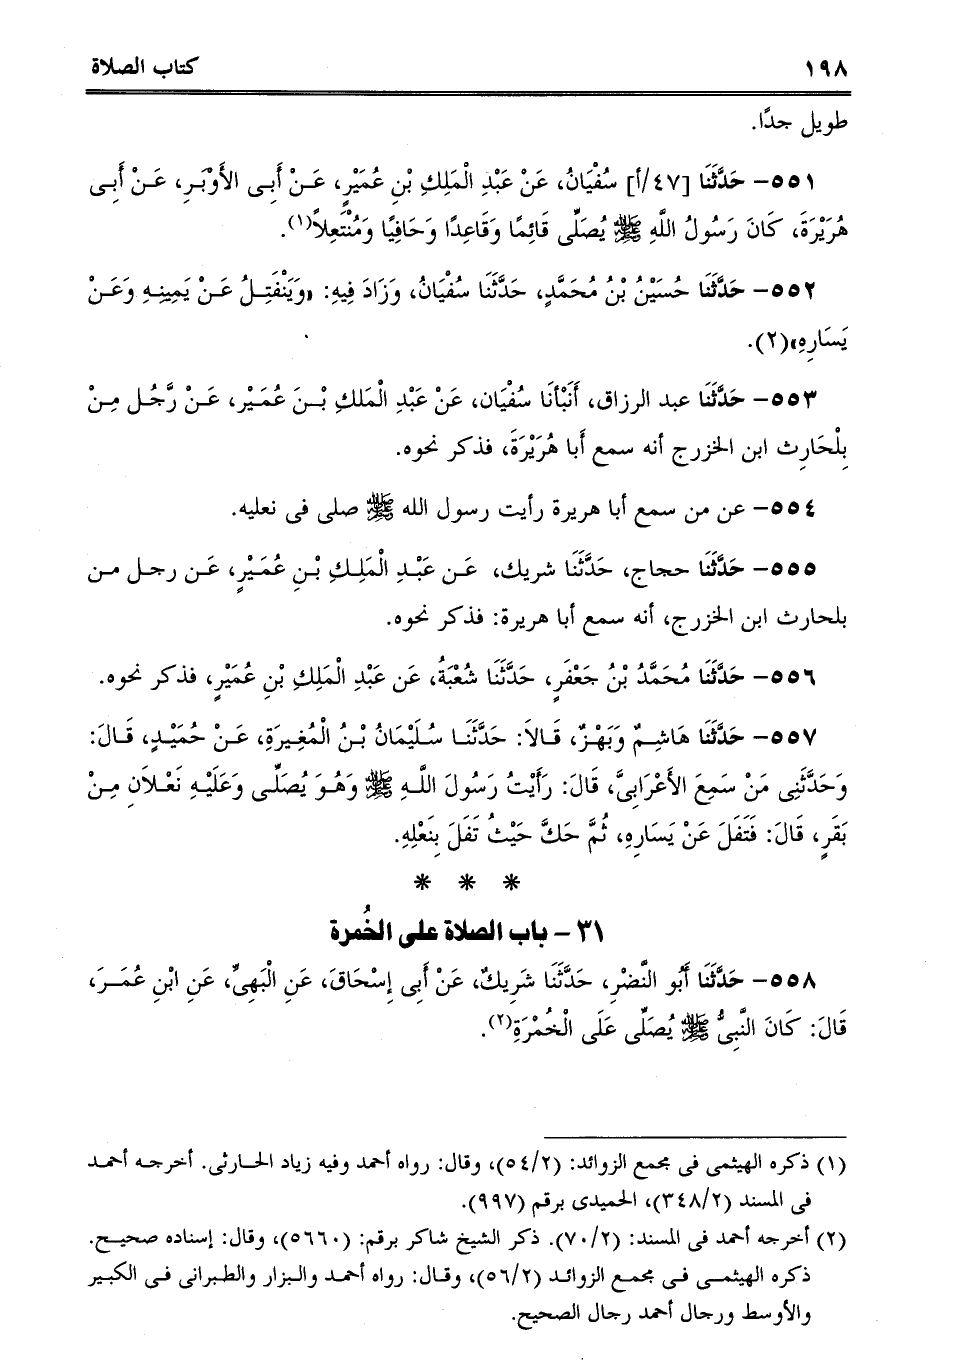 ١٩٨ كتاب الصلاة
طويل جدًا.
٥٥١- حَدَّثَنَا [٤٧/أ] سُفْيَانُ، عَنْ عَبْدِ الْمَلِكِ بْنِ عُمَيْرٍ، عَنْ أَبِى الأَوْبَرِ، عَنْ أَبِى
هُرَيْرَةَ، كَانَ رَسُولُ اللَّهِ ﷺ يُصَلِّى قَائِمًا وَقَاعِدًا وَحَافِيًا وَمُنْتَعِلاً(١).
٥٥٢- حَدَّثَنَا حُسَيْنُ بْنُ مُحَمَّدٍ، حَدَّثَنَا سُفْيَانُ، وَزَادَ فِيهِ: «وَيَنْفَتِلُ عَنْ يَمِينِهِ وَعَنْ
يَسَارِهِ»(٢).
٥٥٣- حَدَّثَنَا عبد الرزاق، أَنْبأنَا سُفْيَان، عَنْ عَبْدِ الْمَلكِ بْنَ عُمَيْر، عَنْ رَّجُل مِنْ
بِلْحَارِث ابن الخزرج أنه سمع أَبا هُرَيْرَةَ، فذكر نحوه.
٥٥٤- عن من سمع أبا هريرة رأيت رسول الله ﷺ صلى فى نعليه.
٥٥٥- حَدَّثَنَا حجاج، حَدَّثَنَا شريك، عَن عَبْدِ الْمَلِكِ بْنِ عُمَيْرٍ، عَن رجل من
بلحارث ابن الخزرج، أنه سمع أبا هريرة: فذكر نحوه.
٥٥٦- حَدَّثَنَا مُحَمَّدُ بْنُ جَعْفَرٍ، حَدَّثَنَا شُعْبَةُ، عَن عَبْدِ الْمَلِكِ بْنِ عُمَيْرٍ، فذكر نحوه.
٥٥٧- حَدَّثَنَا هَاشِمٌ وَبَهْزٌ، قَالاَ: حَدَّثَنَا سُلَيْمَانُ بْنُ الْمُغِيرَةِ، عَنْ حُمَيْدٍ، قَالَ:
وَحَدَّثَنِى مَنْ سَمِعَ الأَعْرَابِىَّ، قَالَ: رَأَيْتُ رَسُولَ اللَّهِ ﷺ وَهُوَ يُصَلِّى وَعَلَيْهِ نَعْلاَنِ مِنْ
بَقَرٍ، قَالَ: فَتَفَلَ عَنْ يَسَارِهِ، ثُمَّ حَكَّ حَيْثُ تَفَلَ بِنَعْلِهِ.
* * *
٣١ - باب الصلاة على الخُمرة
٥٥٨- حَدَّثَنَا أَبُو النَّضْرِ، حَدَّثَنَا شَرِيكٌ، عَنْ أَبِى إِسْحَاقَ، عَنِ الْبَهِىِّ، عَنِ ابْنِ عُمَرَ،
قَالَ: كَانَ النَّبِىُّ ﷺ يُصَلِّى عَلَى الْخُمْرَةِ(٢).
(١) ذكره الهيثمى فى مجمع الزوائد: (٥٤/٢)، وقال: رواه أحمد وفيه زياد الحارثى. أخرجه أحمد
فى المسند (٣٤٨/٢)، الحميدى برقم (٩٩٧).
(٢) أخرجه أحمد فى المسند: (٧٠/٢). ذكر الشيخ شاكر برقم: (٥٦٦٠)، وقال: إسناده صحيح.
ذكره الهيثمى فى مجمع الزوائد (٥٦/٢)، وقال: رواه أحمد والبزار والطبرانى فى الكبير
والأوسط ورجال أحمد رجال الصحيح.